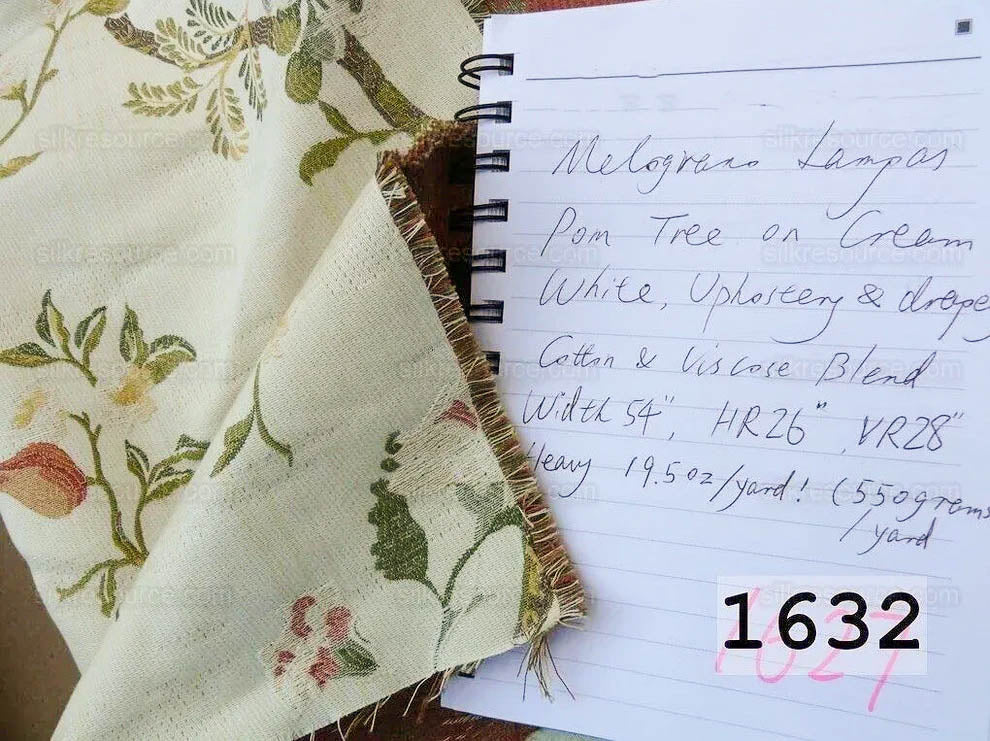 Melograno Lampas
Pom Tree on Cream
White, Upholstery & drape
Cotton & Viscose Blend
Width 54", HR26", VR28"
Heavy 19.5oz/yard! (550grams
/yard
1632
1627
silkresource.com